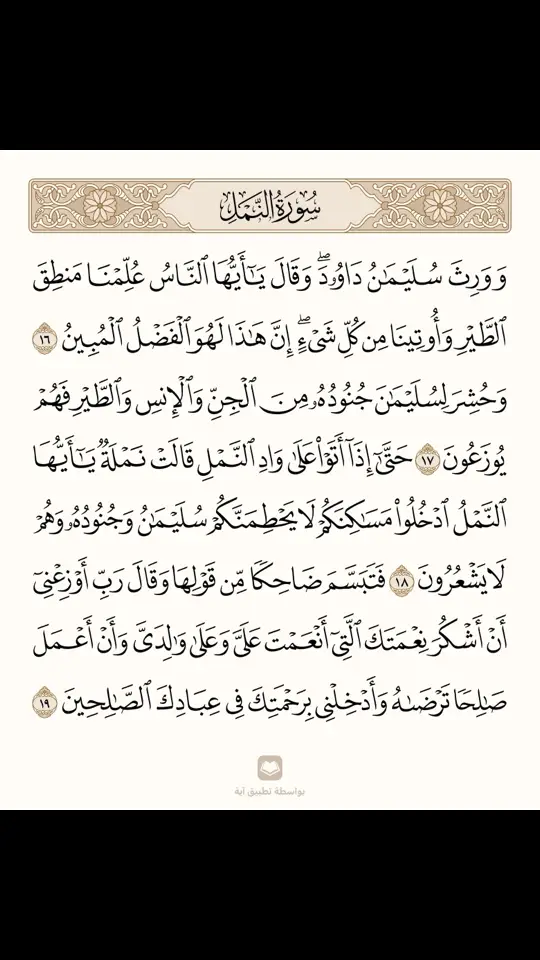 سُورَةُ النَّمۡلِ
وَوَرِثَ سُلَيۡمَٰنُ دَاوُۥدَۖ وَقَالَ يَٰٓأَيُّهَا ٱلنَّاسُ عُلِّمۡنَا مَنطِقَ
ٱلطَّيۡرِ وَأُوتِينَا مِن كُلِّ شَيۡءٍۖ إِنَّ هَٰذَا لَهُوَ ٱلۡفَضۡلُ ٱلۡمُبِينُ ١٦
وَحُشِرَ لِسُلَيۡمَٰنَ جُنُودُهُۥ مِنَ ٱلۡجِنِّ وَٱلۡإِنسِ وَٱلطَّيۡرِ فَهُمۡ
يُوزَعُونَ ١٧ حَتَّىٰٓ إِذَآ أَتَوۡاْ عَلَىٰ وَادِ ٱلنَّمۡلِ قَالَتۡ نَمۡلَةٞ يَٰٓأَيُّهَا
ٱلنَّمۡلُ ٱدۡخُلُواْ مَسَٰكِنَكُمۡ لَا يَحۡطِمَنَّكُمۡ سُلَيۡمَٰنُ وَجُنُودُهُۥ وَهُمۡ
لَا يَشۡعُرُونَ ١٨ فَتَبَسَّمَ ضَاحِكٗا مِّن قَوۡلِهَا وَقَالَ رَبِّ أَوۡزِعۡنِيٓ
أَنۡ أَشۡكُرَ نِعۡمَتَكَ ٱلَّتِيٓ أَنۡعَمۡتَ عَلَيَّ وَعَلَىٰ وَٰلِدَيَّ وَأَنۡ أَعۡمَلَ
صَٰلِحٗا تَرۡضَىٰهُ وَأَدۡخِلۡنِي بِرَحۡمَتِكَ فِي عِبَادِكَ ٱلصَّٰلِحِينَ ١٩
بواسطة تطبيق آية